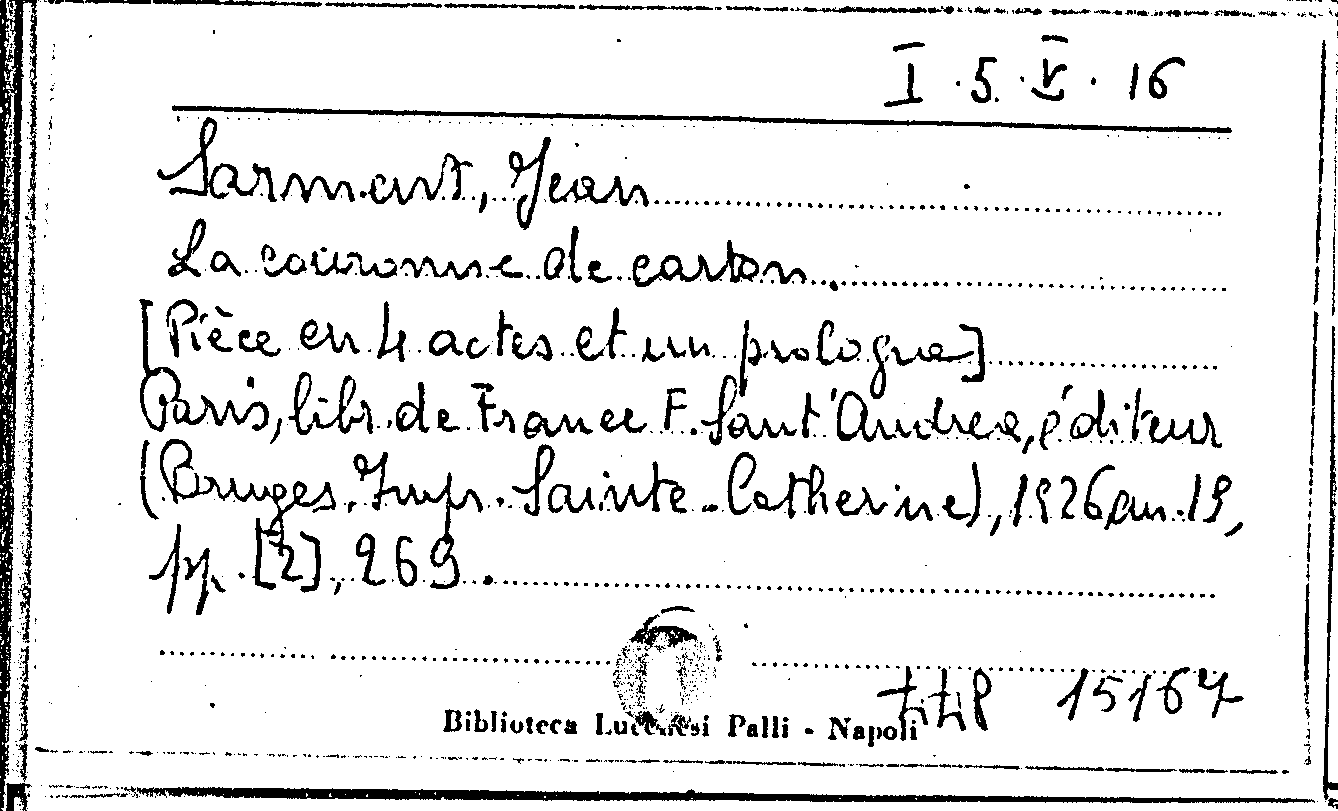 I. 5. V. 16
Sarment, Jean
La couronne de carton.
[Pièce en 4 actes et un prologue]
Paris, libr. de France F. Sant'Andrea, éditeur
(Bruges. Impr. Sainte-Catherine), 1926, cm. 19,
pp. [2], 269.
15167
Biblioteca Lucchesi Palli - Napoli